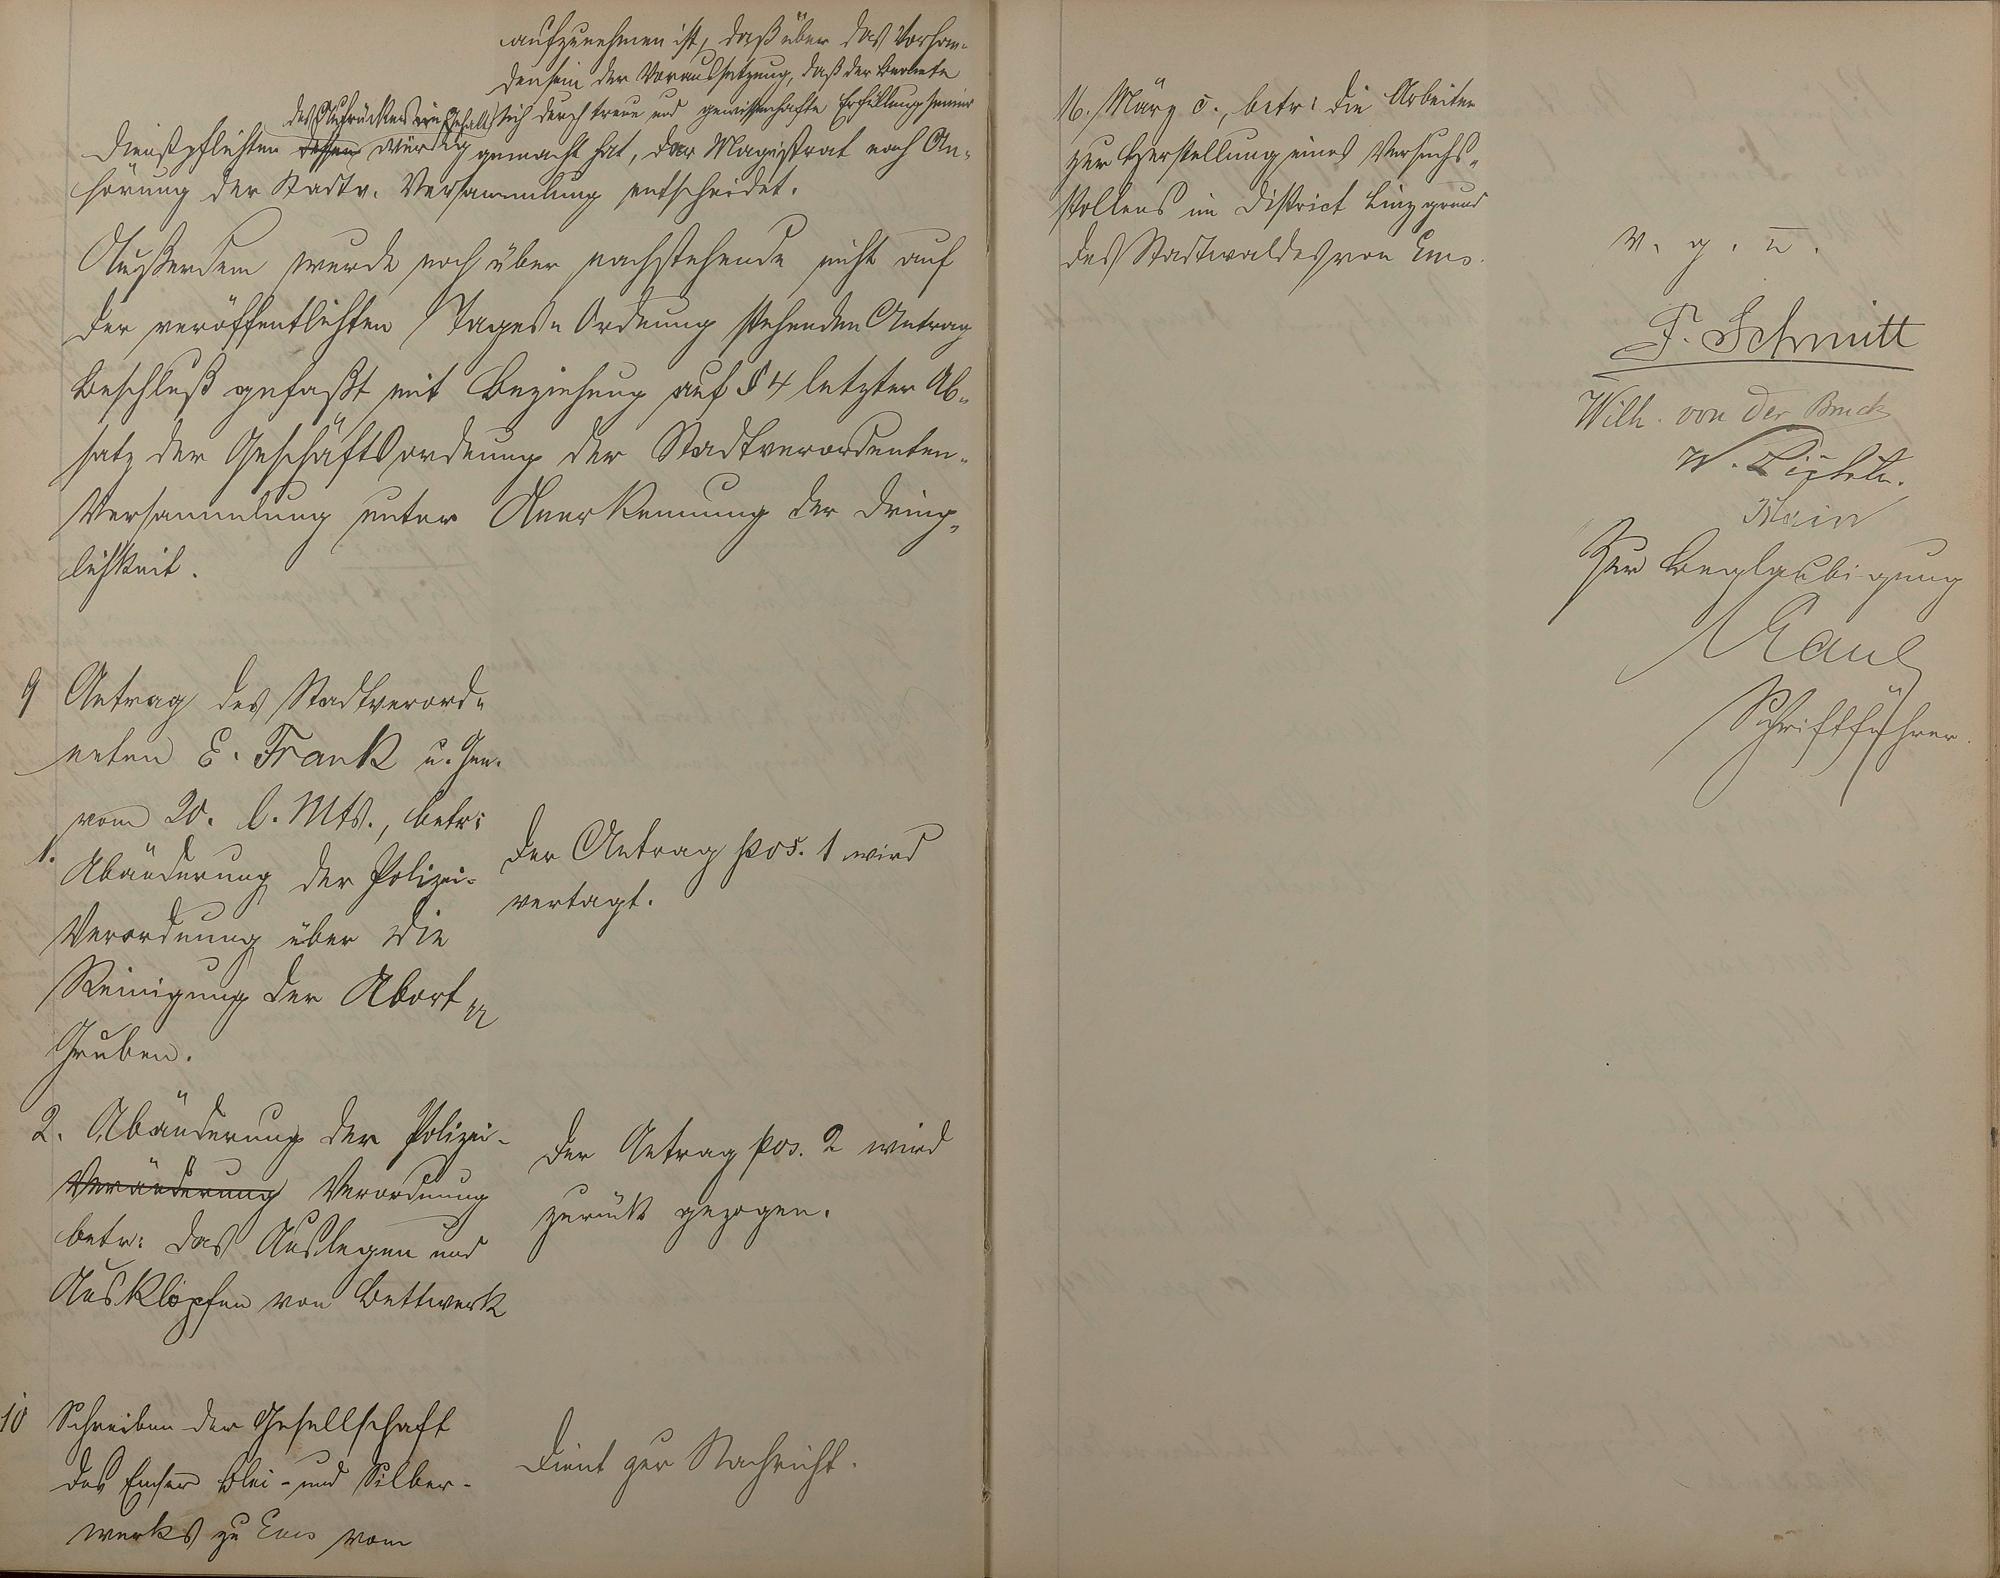 aufzunehmen ist, daß über das Vorhan-
densein der Voraussetzung, daß der Beamte
des Aufrückens im Gehalt sich durch treue und gewissenhafte Erfüllung seiner
Dienstpflichten dessen würdig gemacht hat, der Magistrat nach An-
hörung der Stadtv. Versammlung entscheidet.
Außerdem wurde noch über nachstehende nicht auf
der veröffentlichten Tages-Ordnung stehenden Antrag
Beschluß gefaßt mit Beziehung auf § 4 letzter Ab-
satz der Geschäftsordnung der Stadtverordneten-
Versammlung unter Anerkennung der Dring-
lichkeit.
9 Antrag des Stadtverord-
neten E. Frank u. Gen.
vom 20. l. Mts., betr:
1. Abänderung der Polizei-
Verordnung über die
Reinigung der Abort-
Gruben.
Der Antrag pos. 1 wird
vertagt.
2. Abänderung der Polizei-
Veränderung Verordnung
betr: das Auslegen und
Ausklopfen von Bettwerk
Der Antrag pos. 2 wird
zurück gezogen.
10 Schreiben der Gesellschaft
des Emser Blei- und Silber-
werks zu Ems vom
Dient zur Nachricht.
16. März c., betr: die Arbeiten
zur Herstellung eines Versuchs-
stollens im District Linzgrund
des Stadtwaldes von Ems.
v. g. u.
F. Schmitt
Wilh. von der Bruck
W.
Zur Beglaubigung
Kaul
Schriftführer.